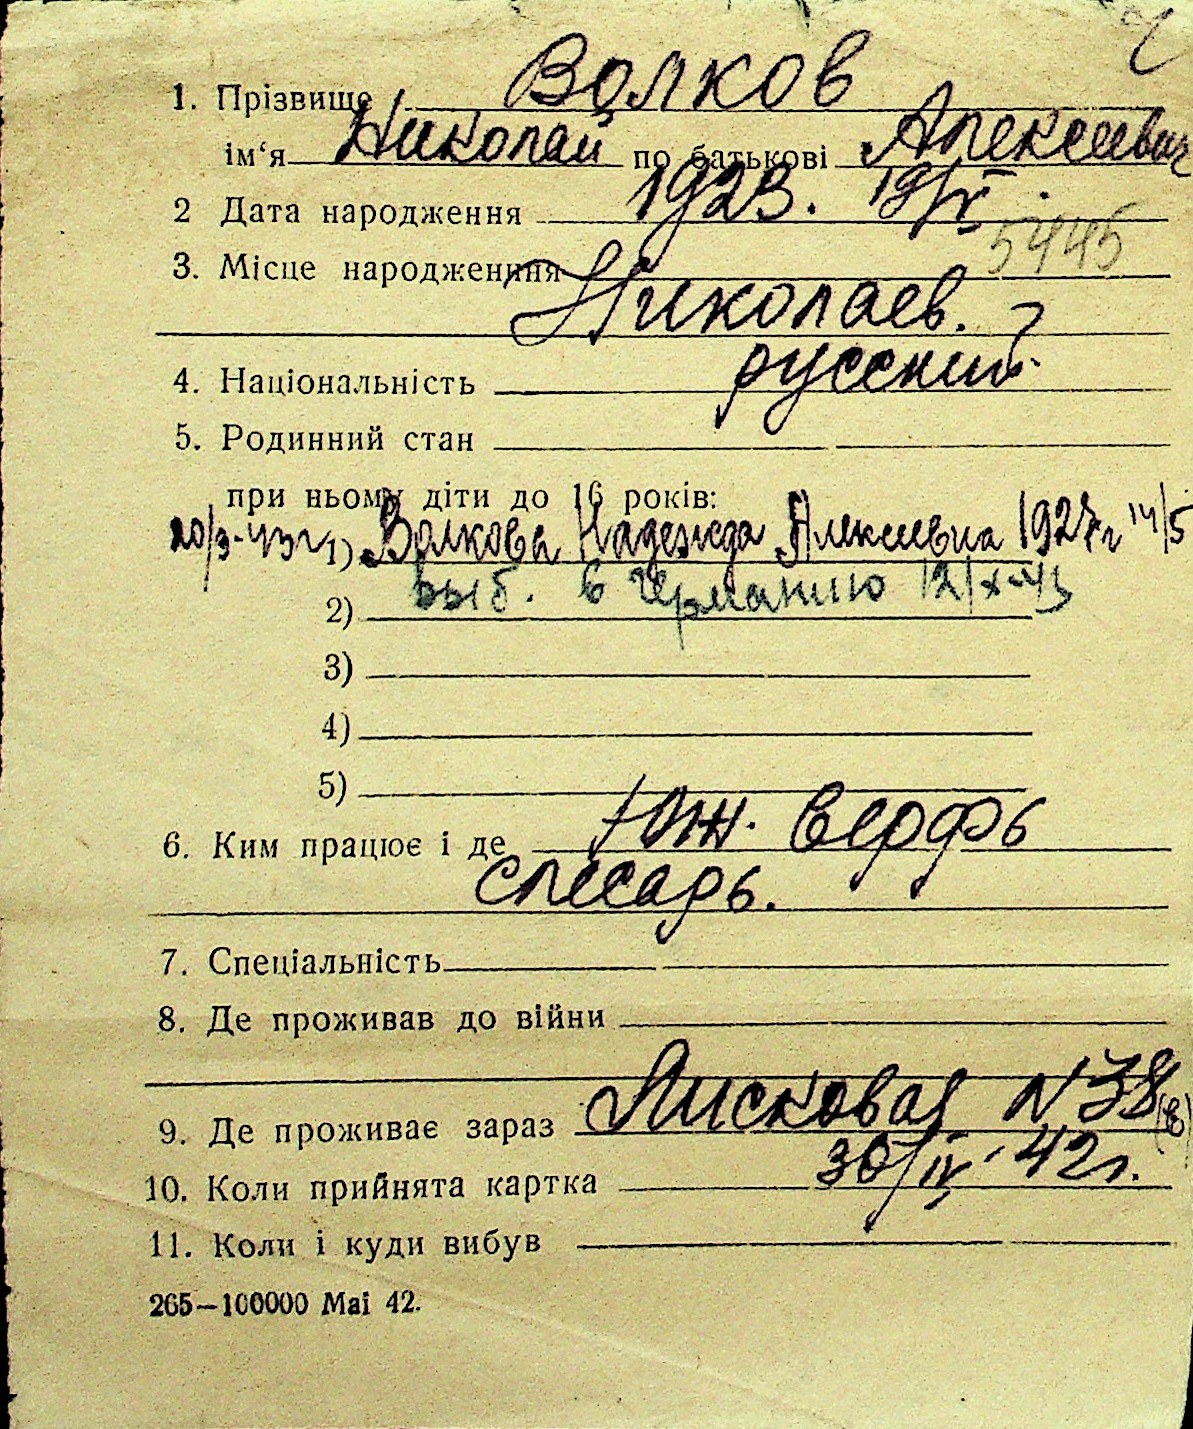 1. Прізвище Волков
ім‘я Николай по батькові Алексеевич
2 Дата народження 1923. 19/IV.
5445
3. Місце народженння
Николаев.
4. Національність русский
5. Родинний стан
при ньому діти до 16 років:
20/3-43г 1) Волкова Надежда Алексеевна 1927г 14/5
2) выб. в Германию 12/X-43
3)
4)
5)
6. Ким працює і де Юж. верфь
слесарь.
7. Спеціальність
8. Де проживав до війни
9. Де проживає зараз Лисковая N 38 (в)
10. Коли прийнята картка 30/IV 42г.
11. Коли і куди вибув
265—100000 Mai 42.